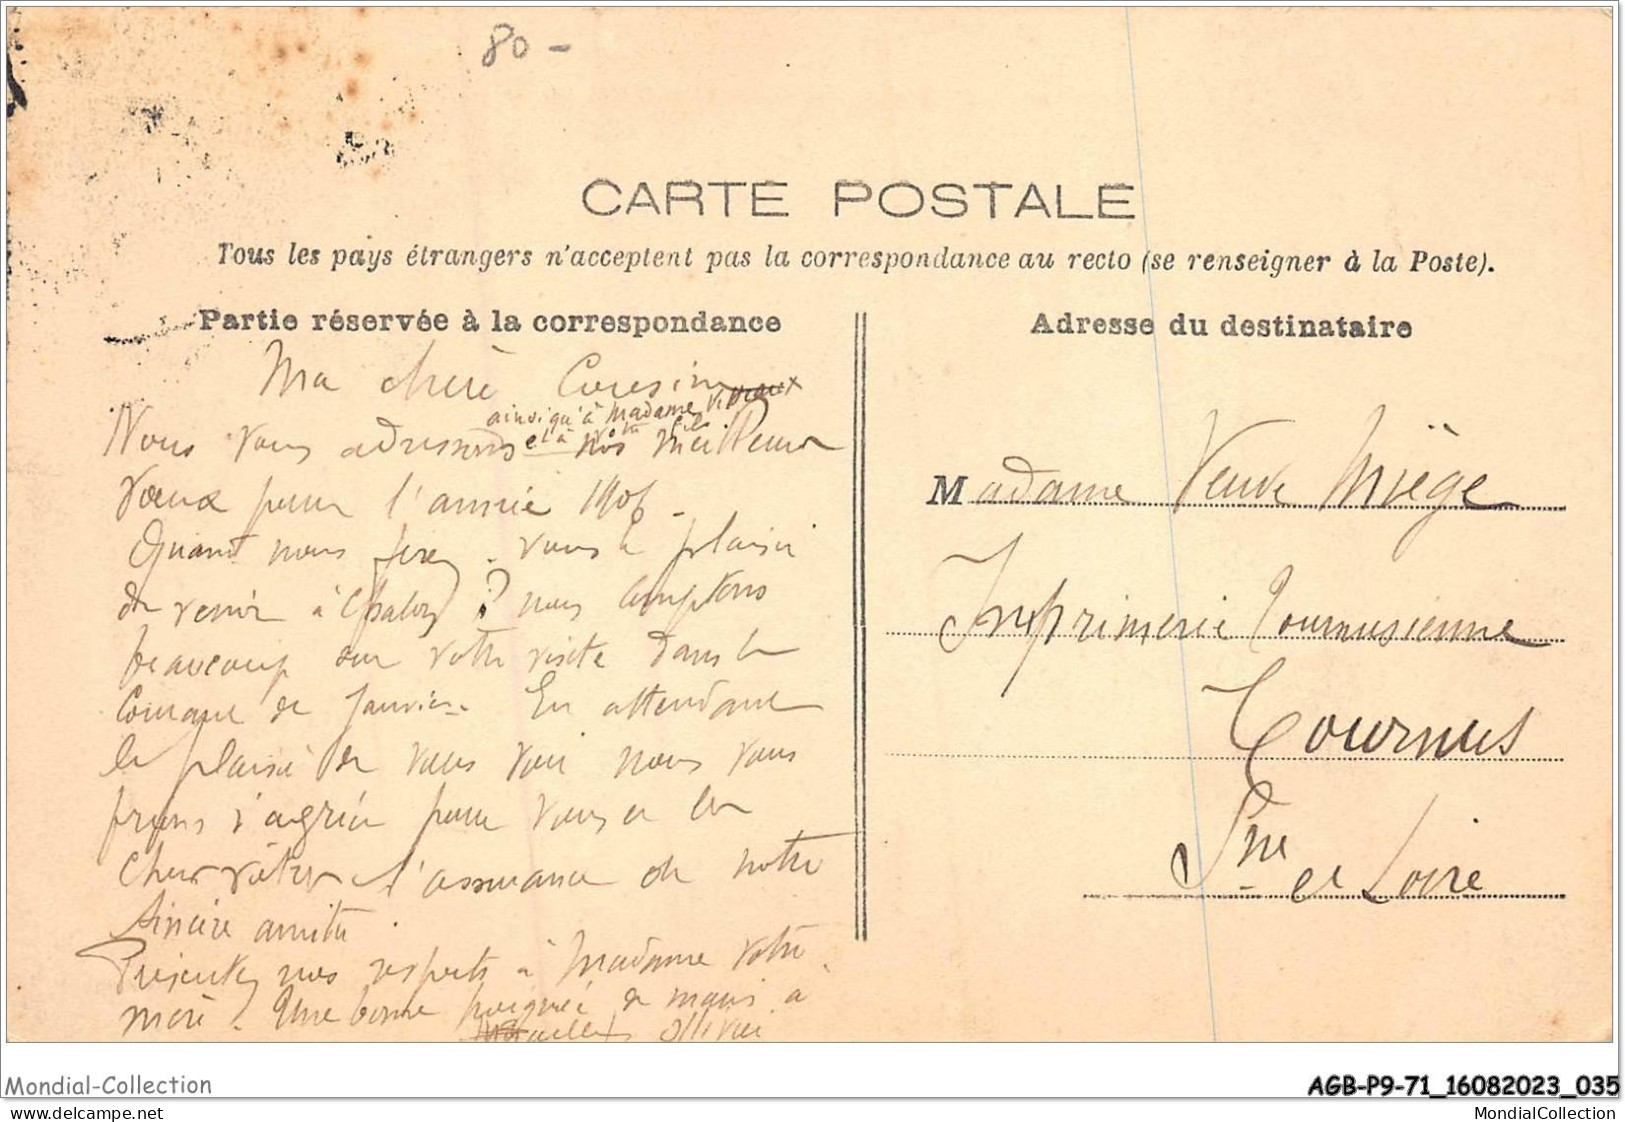 80 -
CARTE POSTALE
Tous les pays étrangers n'acceptent pas la correspondance au recto (se renseigner à la Poste).
Partie réservée à la correspondance
Ma chère Cousine
ainsi qu'à Madame
et à votre fils
Nous vous adressons nos meilleurs
vœux pour l'année 1906 -
Quand nous ferez-vous le plaisir
de venir à Chalon ? nous comptons
beaucoup sur votre visite dans le
courant de Janvier. En attendant
le plaisir de vous voir nous vous
prions d'agréer pour vous et les
chers vôtres l'assurance de notre
sincère amitié.
Présentez nos respects à Madame votre
mère. Une bonne poignée de mains à
Ollivier
Adresse du destinataire
Madame Veuve Miège
Imprimerie Tournusienne
Tournus
Sne et Loire
Mondial-Collection
AGB-P9-71_16082023_035
www.delcampe.net
MondialCollection